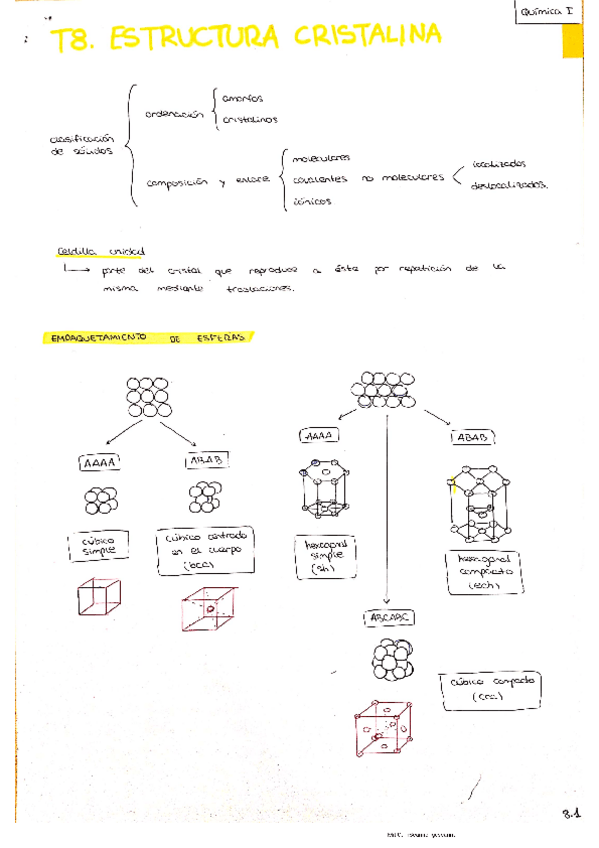 Química I
T8. ESTRUCTURA CRISTALINA
clasificación de sólidos
ordenación
amorfos
cristalinos
composición y enlace
moleculares
covalentes no moleculares
localizados
deslocalizados.
iónicos
Celdilla unidad
parte del cristal que reproduce a éste por repetición de la
misma mediante traslaciones.
EMPAQUETAMIENTO DE ESFERAS
AAAA
ABAB
cúbico
simple
cúbico centrado
en el cuerpo
(bcc)
AAAA
ABAB
hexagonal
simple
(sh)
hexagonal
compacto
ABCABC
cúbico compacto
8.1